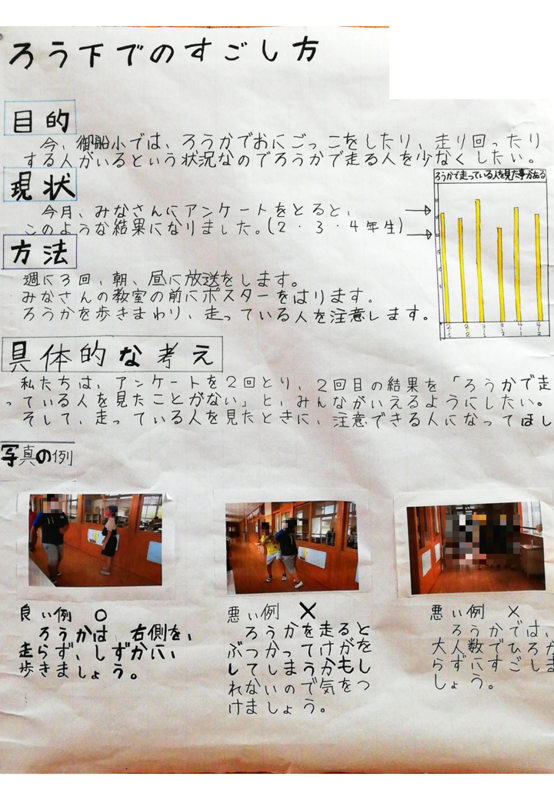 ろう下でのすごし方
目的
今、御船小では、ろうかでおにごっこをしたり、走り回ったり
する人がいるという状況なのでろうかで走る人を少なくしたい。
現状
今月、みなさんにアンケートをとると、
このような結果になりました。(2・3・4年生)
ろうかで走っている人を見た事がある
方法
週に3回、朝、昼に放送をします。
みなさんの教室の前にポスターをはります。
ろうかを歩きまわり、走っている人を注意します。
具体的な考え
私たちは、アンケートを2回とり、2回目の結果を「ろうかで走
っている人を見たことがない」と、みんながいえるようにしたい。
そして、走っている人を見たときに、注意できる人になってほし
写真の例
良い例 ○
ろうかは、右側を、
走らず、しずかに、
歩きましょう。
悪い例 ×
ろうかを走ると
ぶつかってけがを
してしまうかもし
れないので気をつ
けましょう。
悪い例 ×
ろうかでは、
大人数でひろが
らずにすごしま
しょう。